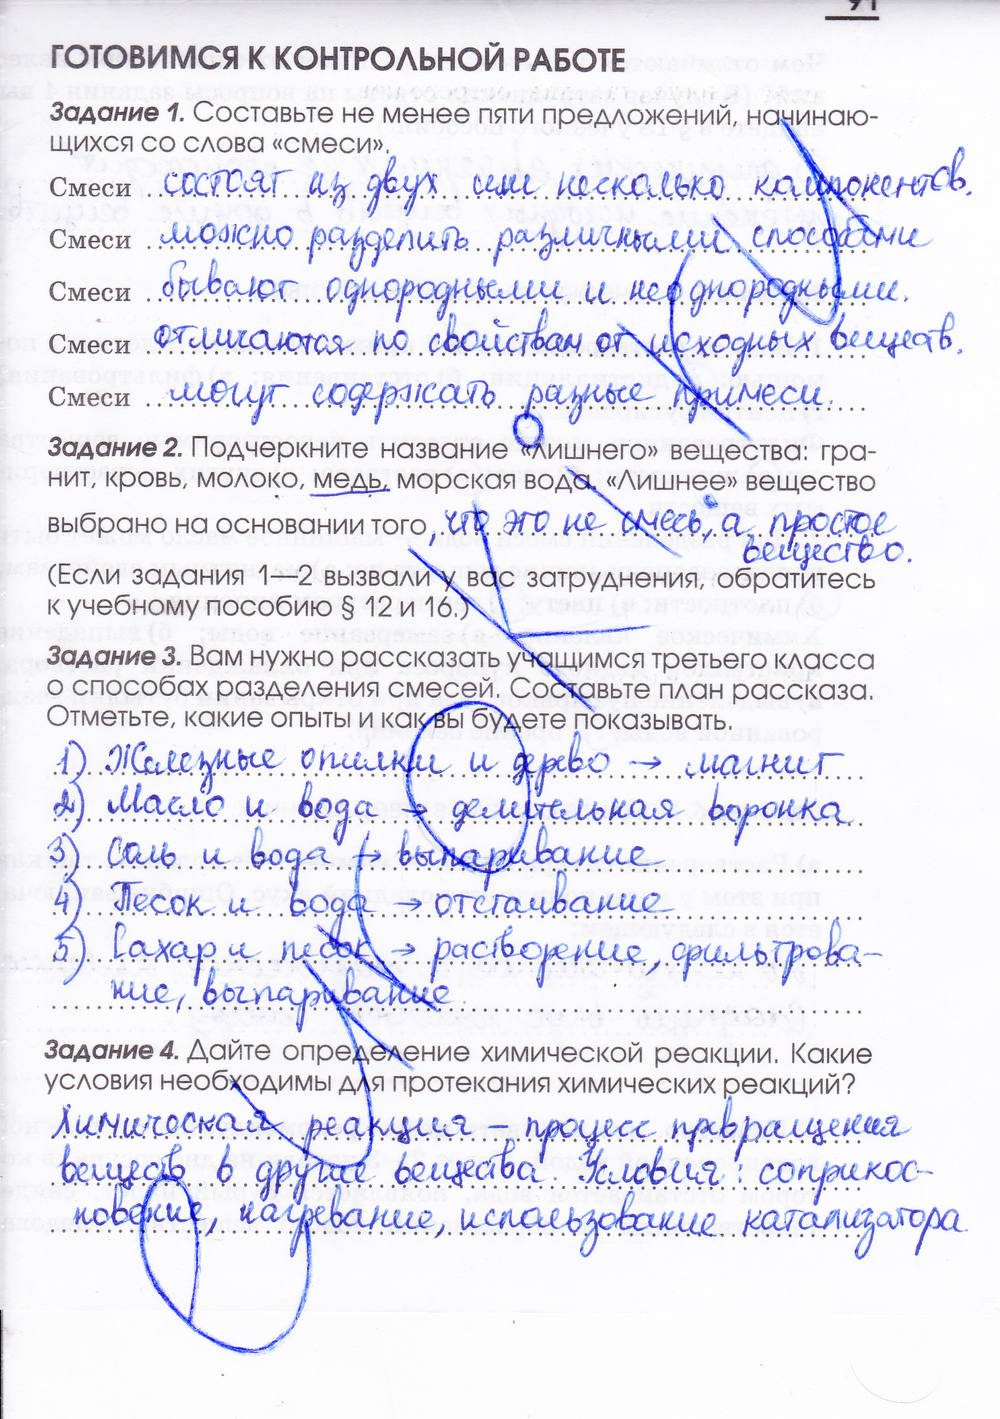 91
ГОТОВИМСЯ К КОНТРОЛЬНОЙ РАБОТЕ
Задание 1. Составьте не менее пяти предложений, начинаю-
щихся со слова «смеси».
Смеси состоят из двух или несколько компонентов.
Смеси можно разделить различными способами
Смеси бывают однородными и неоднородными.
Смеси отличаются по свойствам от исходных веществ.
Смеси могут содержать разные примеси.
Задание 2. Подчеркните название «лишнего» вещества: гра-
нит, кровь, молоко, медь, морская вода. «Лишнее» вещество
выбрано на основании того, что это не смесь, а простое
вещество.
(Если задания 1—2 вызвали у вас затруднения, обратитесь
к учебному пособию § 12 и 16.)
Задание 3. Вам нужно рассказать учащимся третьего класса
о способах разделения смесей. Составьте план рассказа.
Отметьте, какие опыты и как вы будете показывать.
1) Железные опилки и дерево → магнит
2) Масло и вода → делительная воронка
3) Соль и вода → выпаривание
4) Песок и вода → отстаивание
5) Сахар и песок → растворение, фильтрова-
ние, выпаривание
Задание 4. Дайте определение химической реакции. Какие
условия необходимы для протекания химических реакций?
Химическая реакция – процесс превращения
веществ в другие вещества. Условия: соприкос-
новение, нагревание, использование катализатора